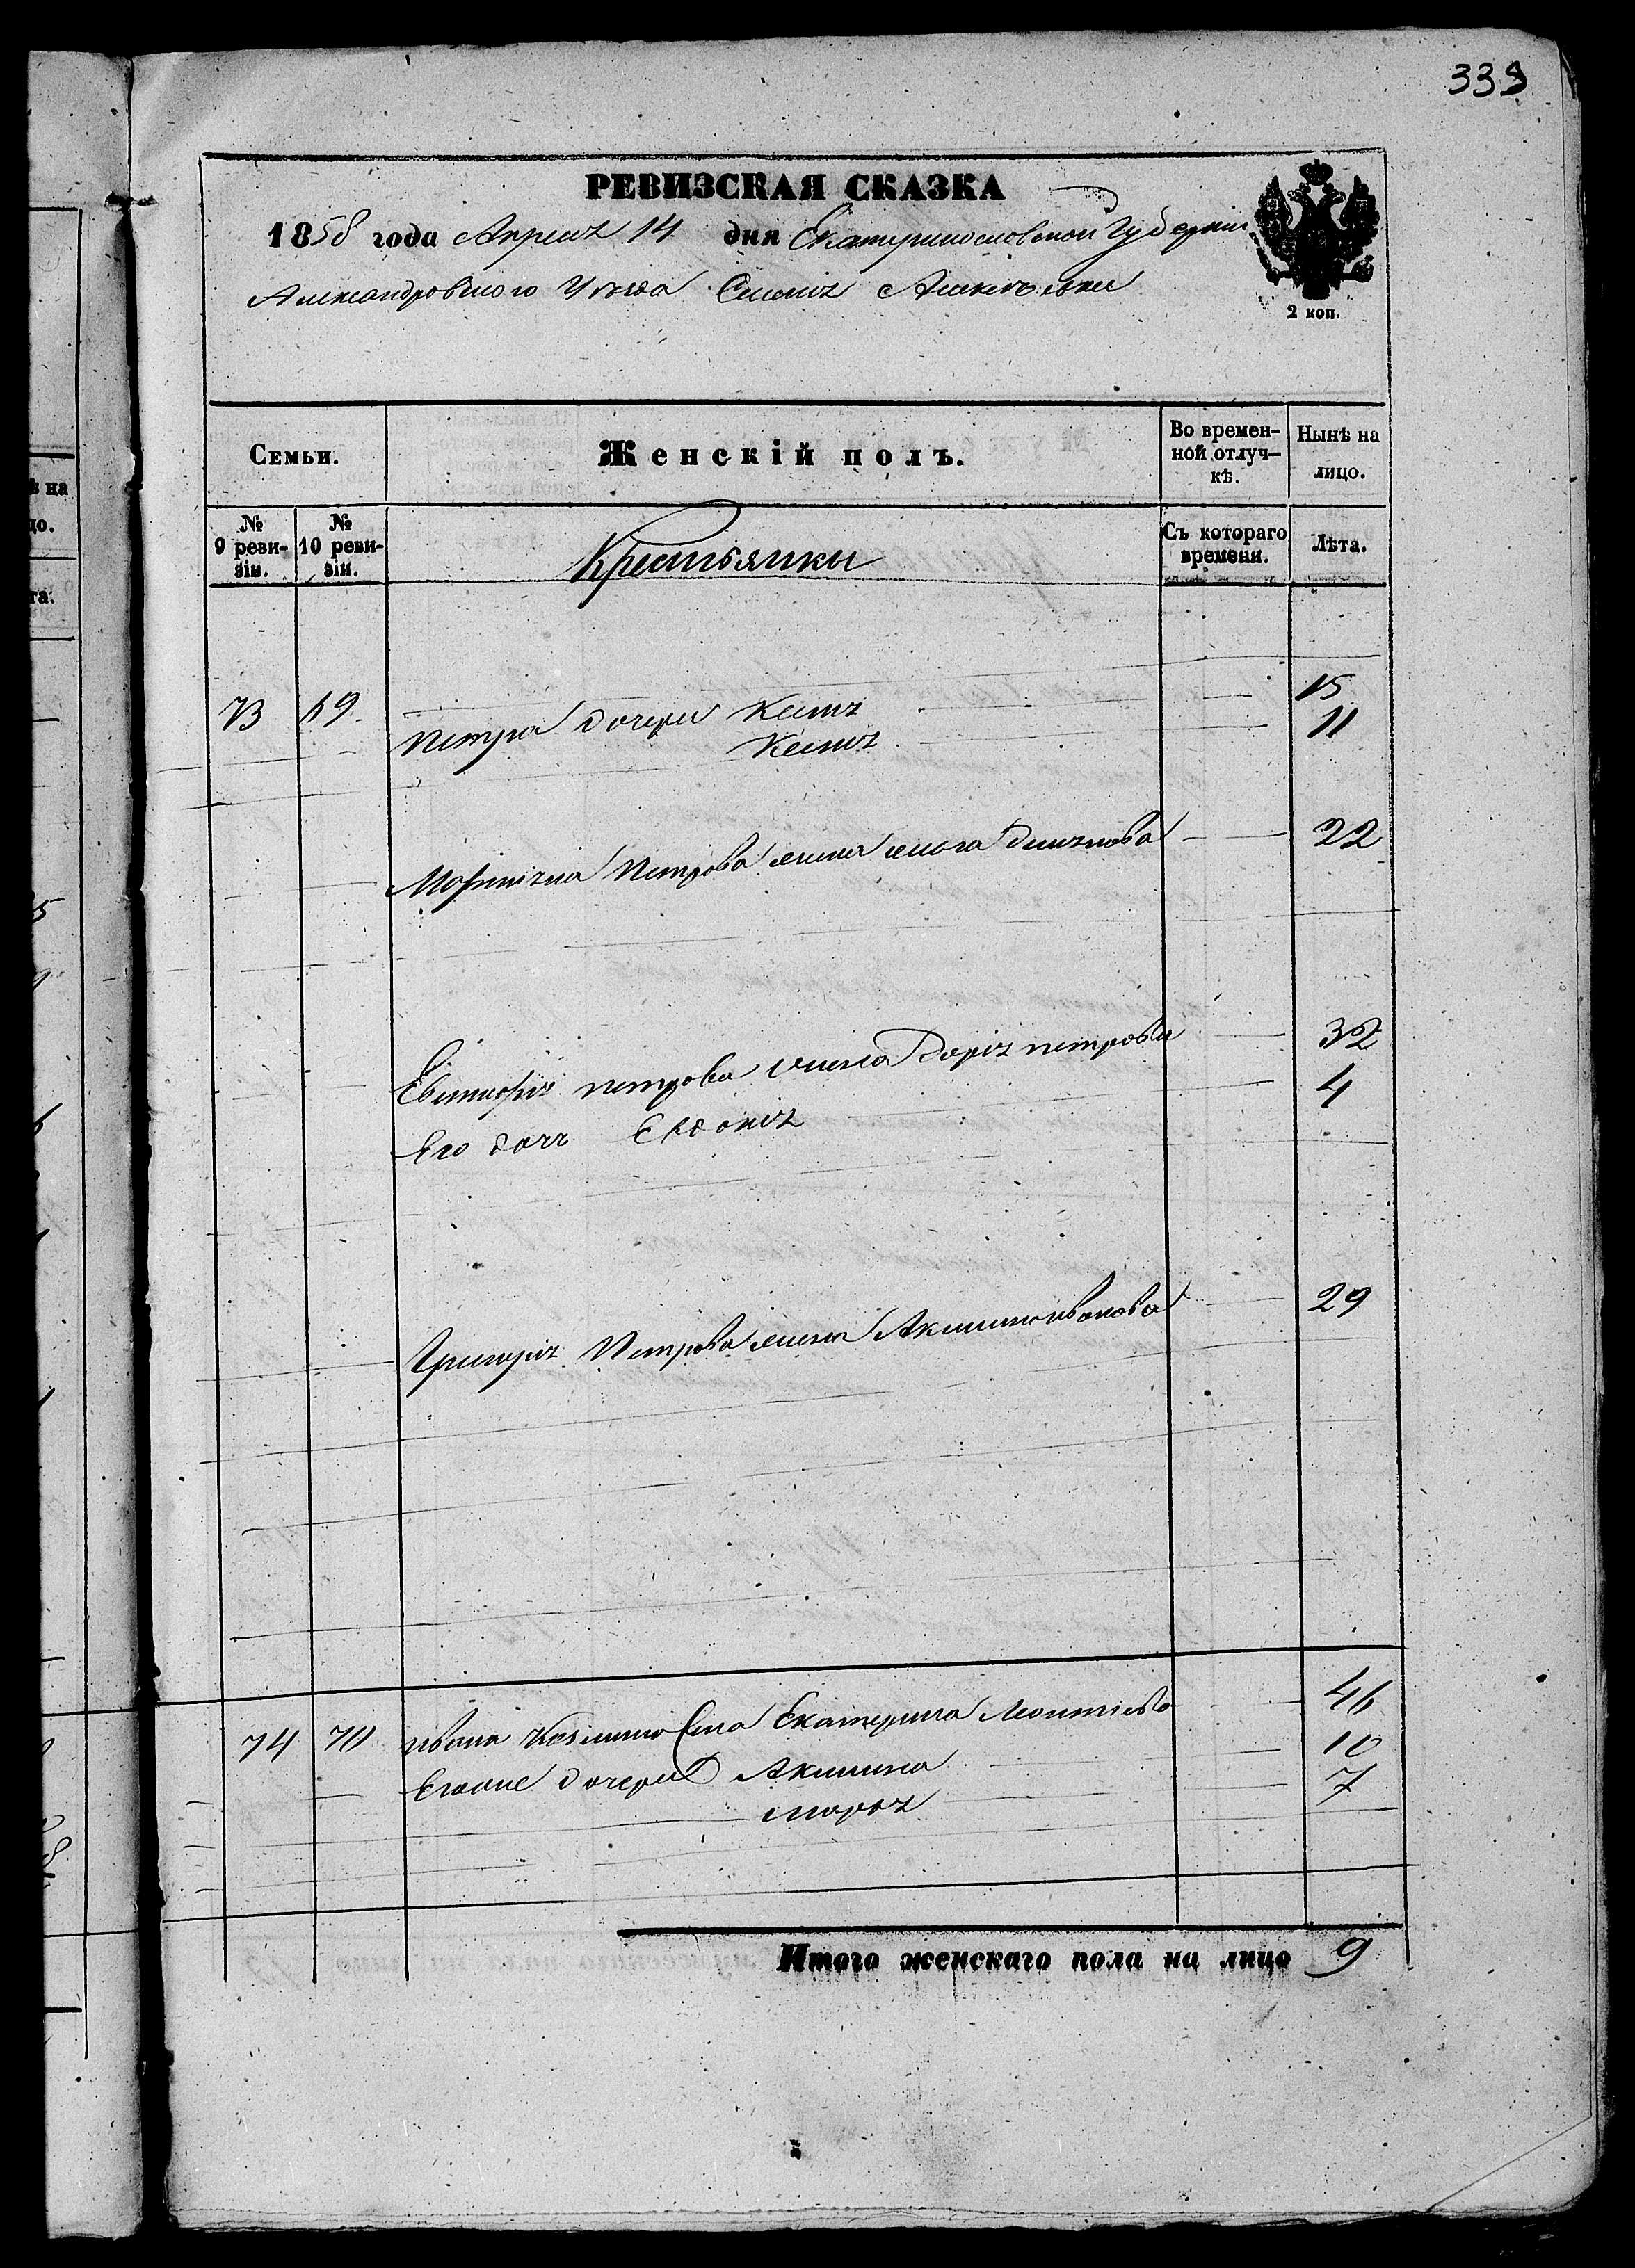 339
РЕВИЗСКАЯ СКАЗКА
1858 года Апреля 14 дня Екатеринославской Губернии
Александровского Уезда
2 коп.
Семьи.
Женскій полъ.
Во времен-
ной отлуч-
кѣ.
Нынѣ на
лицо.
№
9 реви-
зіи.
№
10 реви-
зіи.
Крестьянки
Съ котораго
времени.
Лѣта.
73 69 Петра дочери 15
11
Петрова жена 22
Петрова жена Дарія петрова 32
Его дочь Евдокія 4
Григорія Петрова жена Акилина иванова 29
74 70 ивана жена Екатерина Леонтіева 46
Егоже дочери Акилина 10
марія 7
Итого женскаго пола на лицо 9